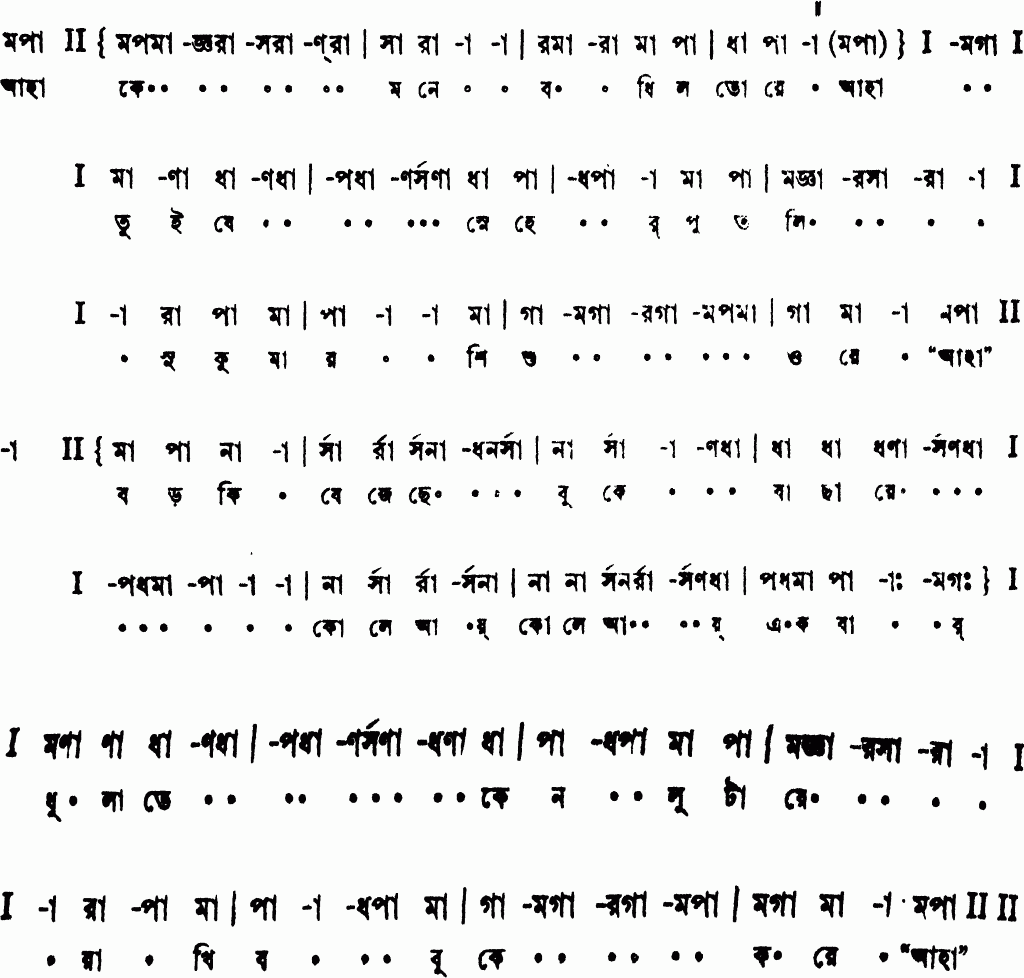 মপা II { মপমা -জ্ঞরা -সরা -ণ্‌রা | সা রা -া -া | রমা -রা মা পা | ধা পা -া (মপা) } I -মগা I
আহা কে•• • • • • •• ম নে • • ব• • ধি ল তো রে • আহা • •
I মা -ণা ধা -ণধা | -পধা -ণর্সণা ধা পা | -ধপা -া মা পা | মজ্ঞা -রসা -রা -া I
তু ই যে • • • • ••• স্নে হে • • র্ পু ত লি• • • • •
I -া রা পা মা | পা -া -া মা | গা -মগা -রগা -মপমা | গা মা -া মপা II
• সু কু মা র • • শি শু • • • • • • • ও রে • “আহা”
-া II { মা পা না -া | র্সা র্রা র্সনা -ধনর্সা | না র্সা -া -ণধা | ধা ধা ধণা -র্সণধা I
ব ড় কি • বে জে ছে• • • • বু কে • • • বা ছা রে• • • •
I -পধমা -পা -া -া | না র্সা র্রা -র্সনা | না না র্সনর্রা -র্সণধা | পধমা পা -াঃ -মগঃ } I
• • • • • • কো লে আ •য়্ কো লে আ•• ••য়্ এ•ক বা • •র্
I মণা ণা ধা -ণধা | -পধা -ণর্সণা -ধণা ধা | পা -ধপা মা পা | মজ্ঞা -রসা -রা -া I
ধূ• লা তে • • •• • • • • • কে ন • • লু টা রে• • • • •
I -া রা -পা মা | পা -া -ধপা মা | গা -মগা -রগা -মপা | মগা মা -া মপা II II
• রা • খি ব • • • বু কে • • • • • • ক• রে • “আহা”